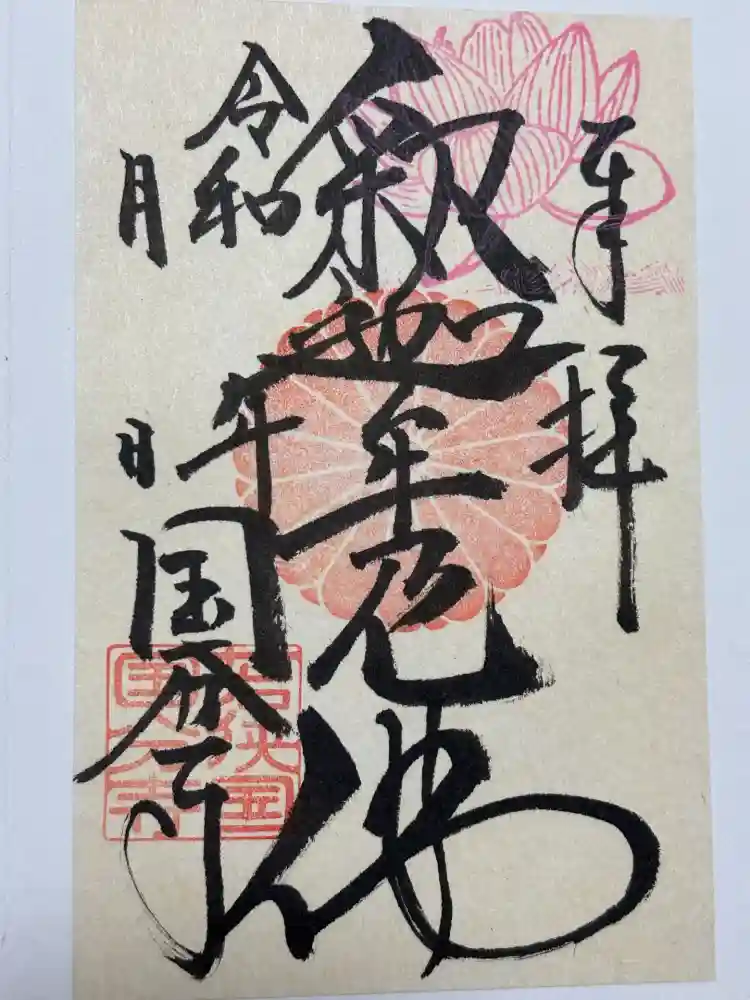 奉拝
釈迦牟尼佛
令和 年
月 日
国分寺
若狭国
國分寺